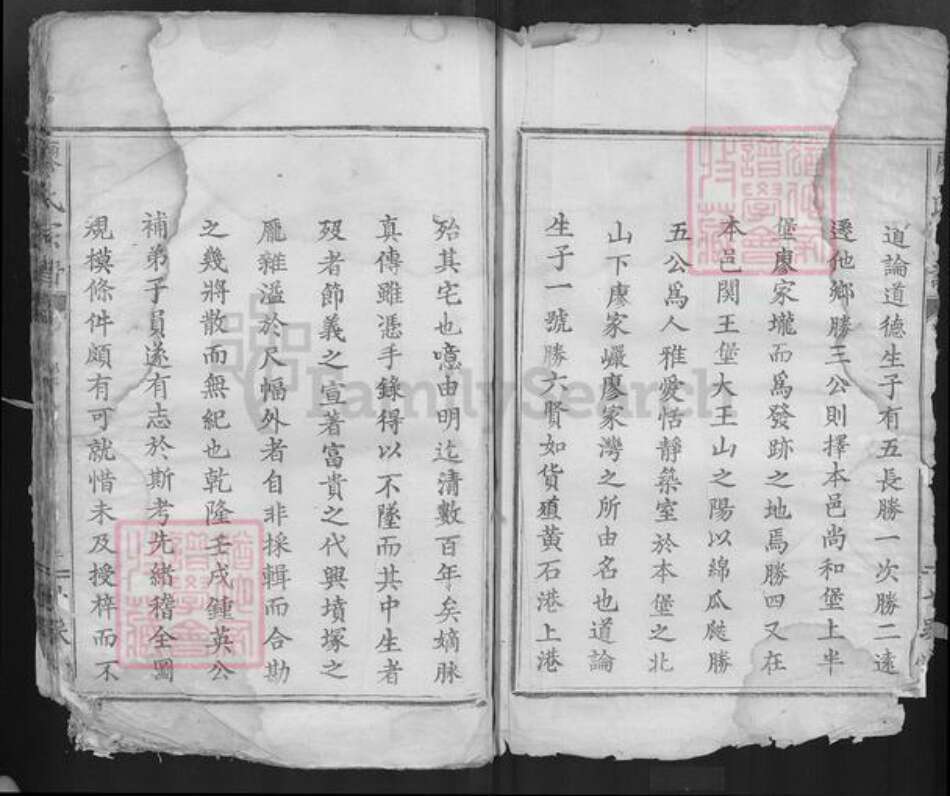 道論道德生子有五長勝一次勝二遠
遷他鄉勝三公則擇本邑尚和堡上半
堡廖家壠而為發跡之地焉勝四又在
本邑関王堡大王山之陽以綿瓜瓞勝
五公為人雅愛恬靜築室於本堡之北
山下廖家巗廖家灣之所由名也道論
生子一號勝六賢如貨殖黃石港上港
殆其宅也噫由明迄清數百年矣嫡脉
真傳雖憑手錄得以不墜而其中生者
歿者節義之宣著富貴之代興墳塚之
厖雜溢於尺幅外者自非採輯而合勘
之幾將散而無紀也乾隆壬戌鍾英公
補弟子員遂有志於斯考先緒稽全圖
規模條件頗有可就惜未及授梓而不
廖氏宗譜
FamilySearch